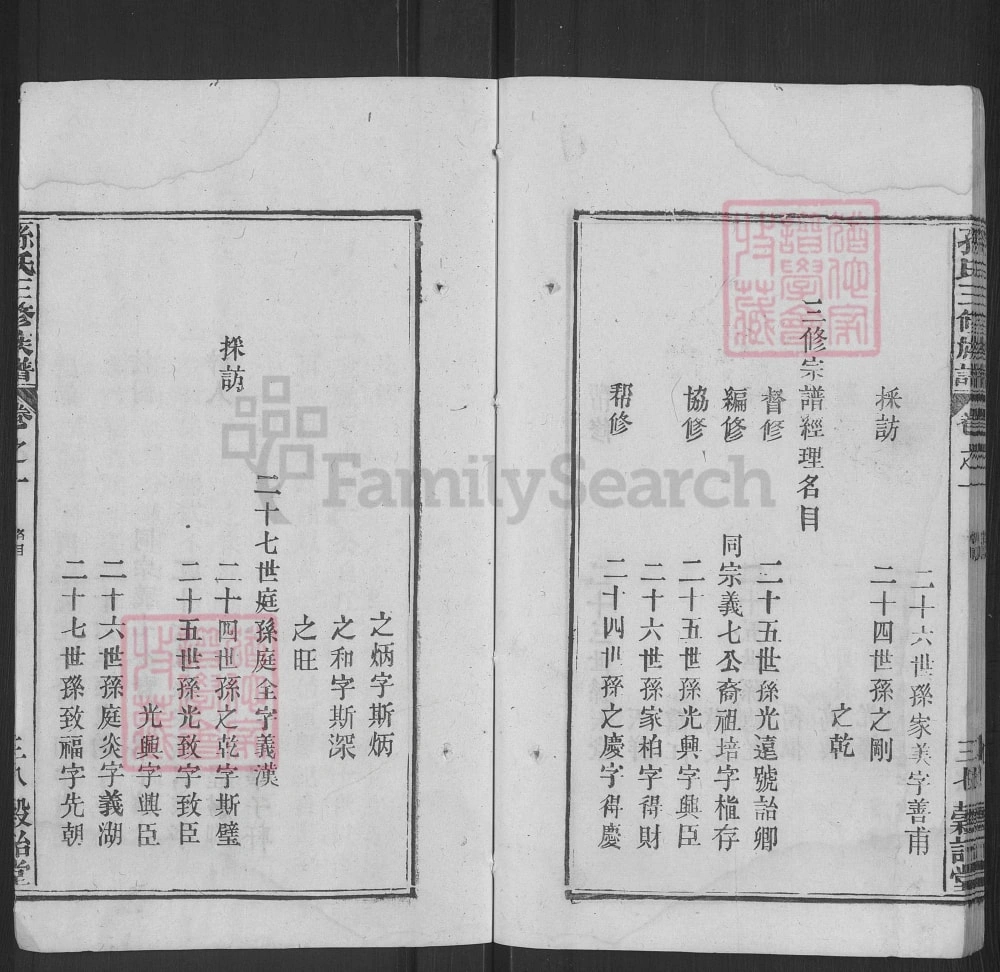 孫氏三修族譜 卷之一 三七 穀詒堂
二十六世孫家美字善甫
採訪 二十四世孫之剛
之乾
三修宗譜經理名目
督修 二十五世孫光遠號詒卿
編修 同宗義七公裔祖培字植存
協修 二十五世孫光興字興臣
二十六世孫家柏字得財
幫修 二十四世孫之慶字得慶
之炳字斯炳
之和字斯深
之旺
二十七世庭孫庭全字義漢
採訪 二十四世孫之乾字斯璧
二十五世孫光致字致臣
光興字興臣
二十六世孫庭炎字義湖
二十七世孫致福字先朝
孫氏三修族譜 卷之一 三八 穀詒堂
FamilySearch